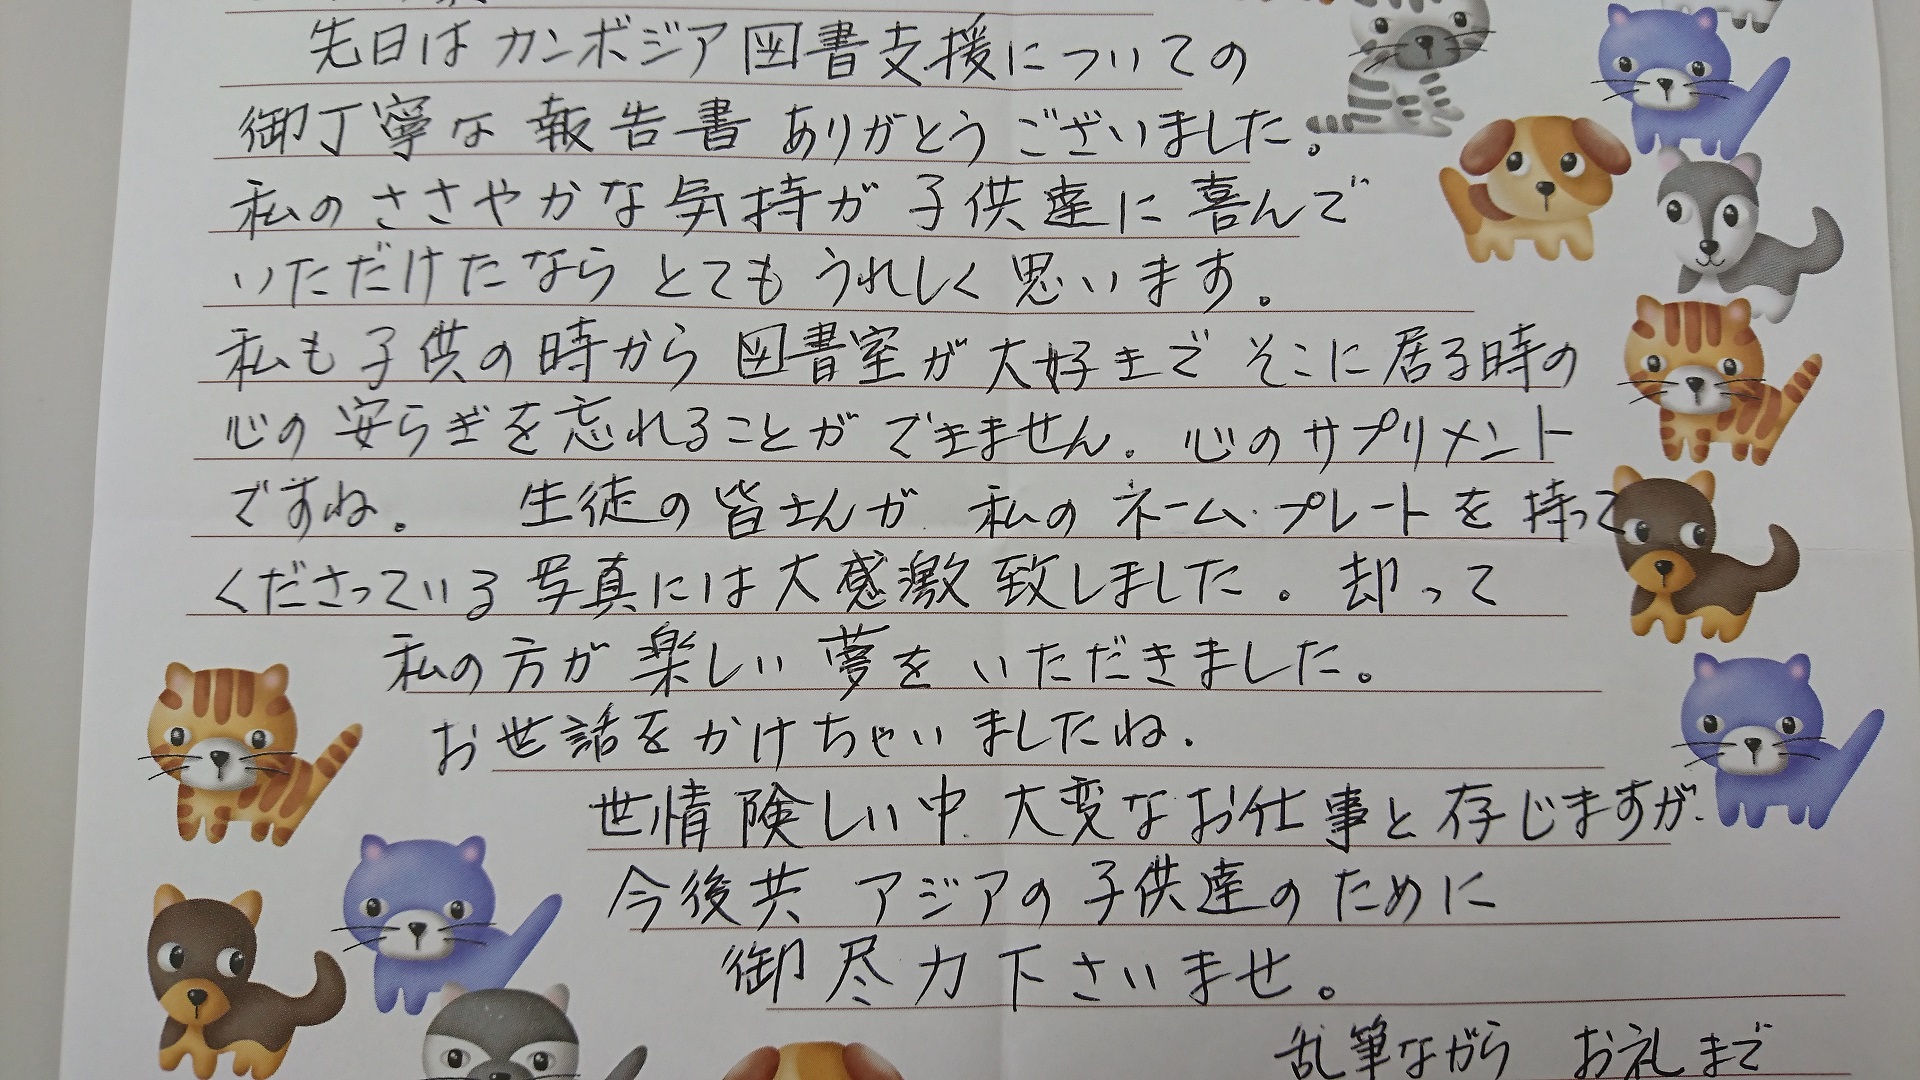 先日は カンボジア図書支援についての
御丁寧な 報告書 ありがとう ございました。
私の ささやかな 気持が 子供達に 喜んで
いただけたなら とても うれしく 思います。
私も 子供の 時から 図書室が 大好きで そこに 居る時の
心の 安らぎを 忘れることが できません。 心の サプリメント
ですね。 生徒の 皆さんが 私の ネーム・プレートを 持って
くださっている 写真には 大感激 致しました。 却って
私の 方が 楽しい 夢を いただきました。
お世話を かけちゃい ましたね.
世情 険しい中 大変な お仕事と 存じますが、
今後共 アジアの 子供達の ために
御尽力 下さいませ。
乱筆ながら お礼まで